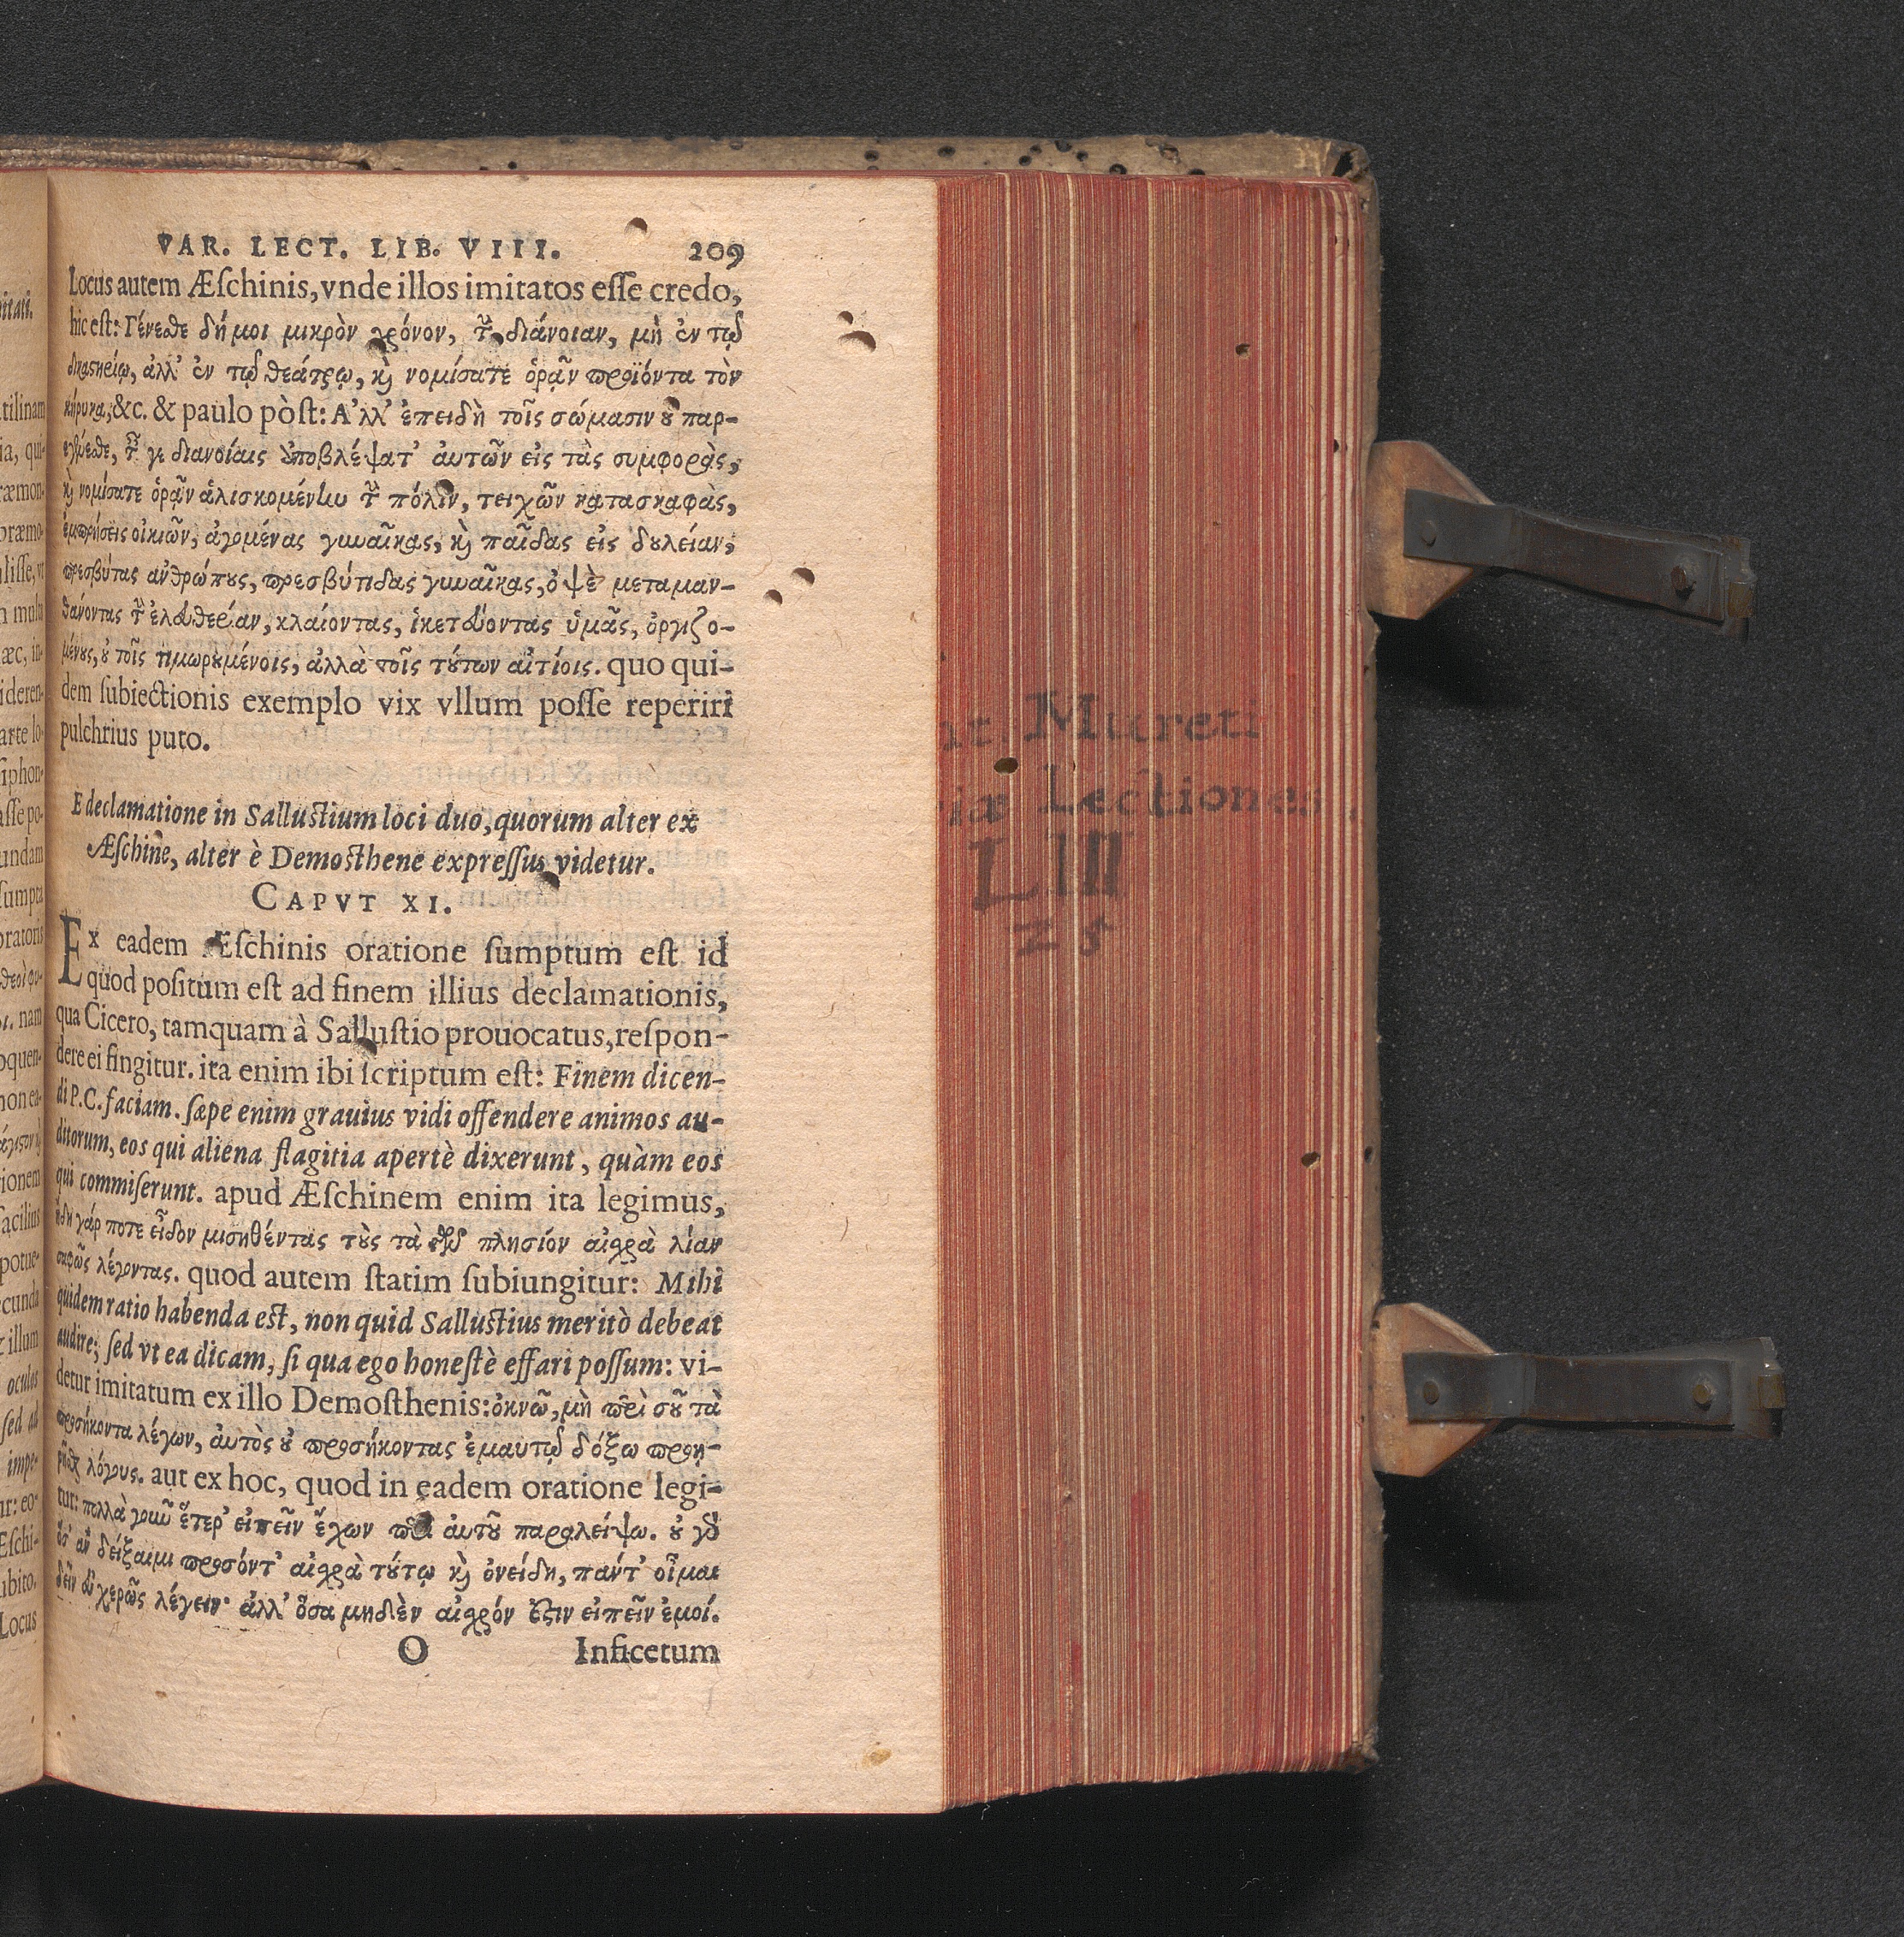 VAR. LECT. LIB. VIII. 209
Locus autem Æſchinis, vnde illos imitatos eſſe credo,
hic eſt: Γένεσθε δή μοι μικρὸν χρόνον, τὴν διάνοιαν, μὴ ἐν τῷ
δικαστηρίῳ, ἀλλ' ἐν τῷ θεάτρῳ, καὶ νομίσατε ὁρᾷν προϊόντα τὸν
κήρυκα, &c. & paulo pòſt: Α'λλ' ἐπειδὴ τοῖς σώμασιν οὐ παρ-
εγένεσθε, ταῖς γε διανοίαις ἀποβλέψατ' ἀυτῶν εἰς τὰς συμφορὰς,
καὶ νομίσατε ὁρᾷν ἁλισκομένην τὴν πόλιν, τειχῶν κατασκαφὰς,
ἐμπρήσεις οἰκιῶν, ἀγομένας γυναῖκας, καὶ παῖδας εἰς δουλείαν,
πρεσβύτας ανθρώπους, πρεσβύτιδας γυναῖκας, ὀψὲ μεταμαν-
θάνοντας τὴν ἐλευθερίαν, κλαίοντας, ἱκετεύοντας ὑμᾶς, ὀργιζο-
μένους, οὐ τοῖς τιμωρουμένοις, ἀλλὰ τοῖς τούτων αἰτίοις. quo qui-
dem ſubiectionis exemplo vix vllum poſſe reperiri
pulchrius puto.
E declamatione in Salluſtium loci duo, quorum alter ex
Æſchine, alter è Demoſthene expreſſus videtur.
CAPVT XI.
Ex eadem Æſchinis oratione ſumptum eſt id
quod poſitum eſt ad finem illius declamationis,
qua Cicero, tamquam à Salluſtio prouocatus, reſpon-
dere ei fingitur. ita enim ibi ſcriptum eſt: Finem dicen-
di P.C. faciam. ſæpe enim grauius vidi offendere animos au-
ditorum, eos qui aliena flagitia apertè dixerunt, quàm eos
qui commiſerunt. apud Æſchinem enim ita legimus,
ἤδη γάρ ποτε εἶδον μισηθέντας τοὺς τὰ τῶν πλησίον αἰσχρὰ λίαν
σαφῶς λέγοντας. quod autem ſtatim ſubiungitur: Mihi
quidem ratio habenda eſt, non quid Salluſtius meritò debeat
audire; ſed vt ea dicam, ſi qua ego honeſtè effari poſſum: vi-
detur imitatum ex illo Demoſthenis: ὀκνῶ, μὴ περὶ σοῦ τὰ
προσήκοντα λέγων, ἀυτὸς οὐ προσήκοντας ἐμαυτῷ δόξω προῃ-
ρῆσθαι λόγους. aut ex hoc, quod in eadem oratione legi-
tur: πολλὰ τοίνυν ἕτερ' εἰπεῖν ἔχων περὶ ἀυτοῦ παραλείψω. οὐ γὰρ
ὅσ' ἂν δείξαιμι προσόντ' αἰσχρὰ τούτῳ καὶ ὀνείδη, πάντ' οἶμαι
δεῖν εὐχερῶς λέγειν· ἀλλ' ὅσα μηδὲν αἰσχρόν ἐστιν εἰπεῖν ἐμοί.
O Inficetum
Mureti
Lectiones
LIII
25